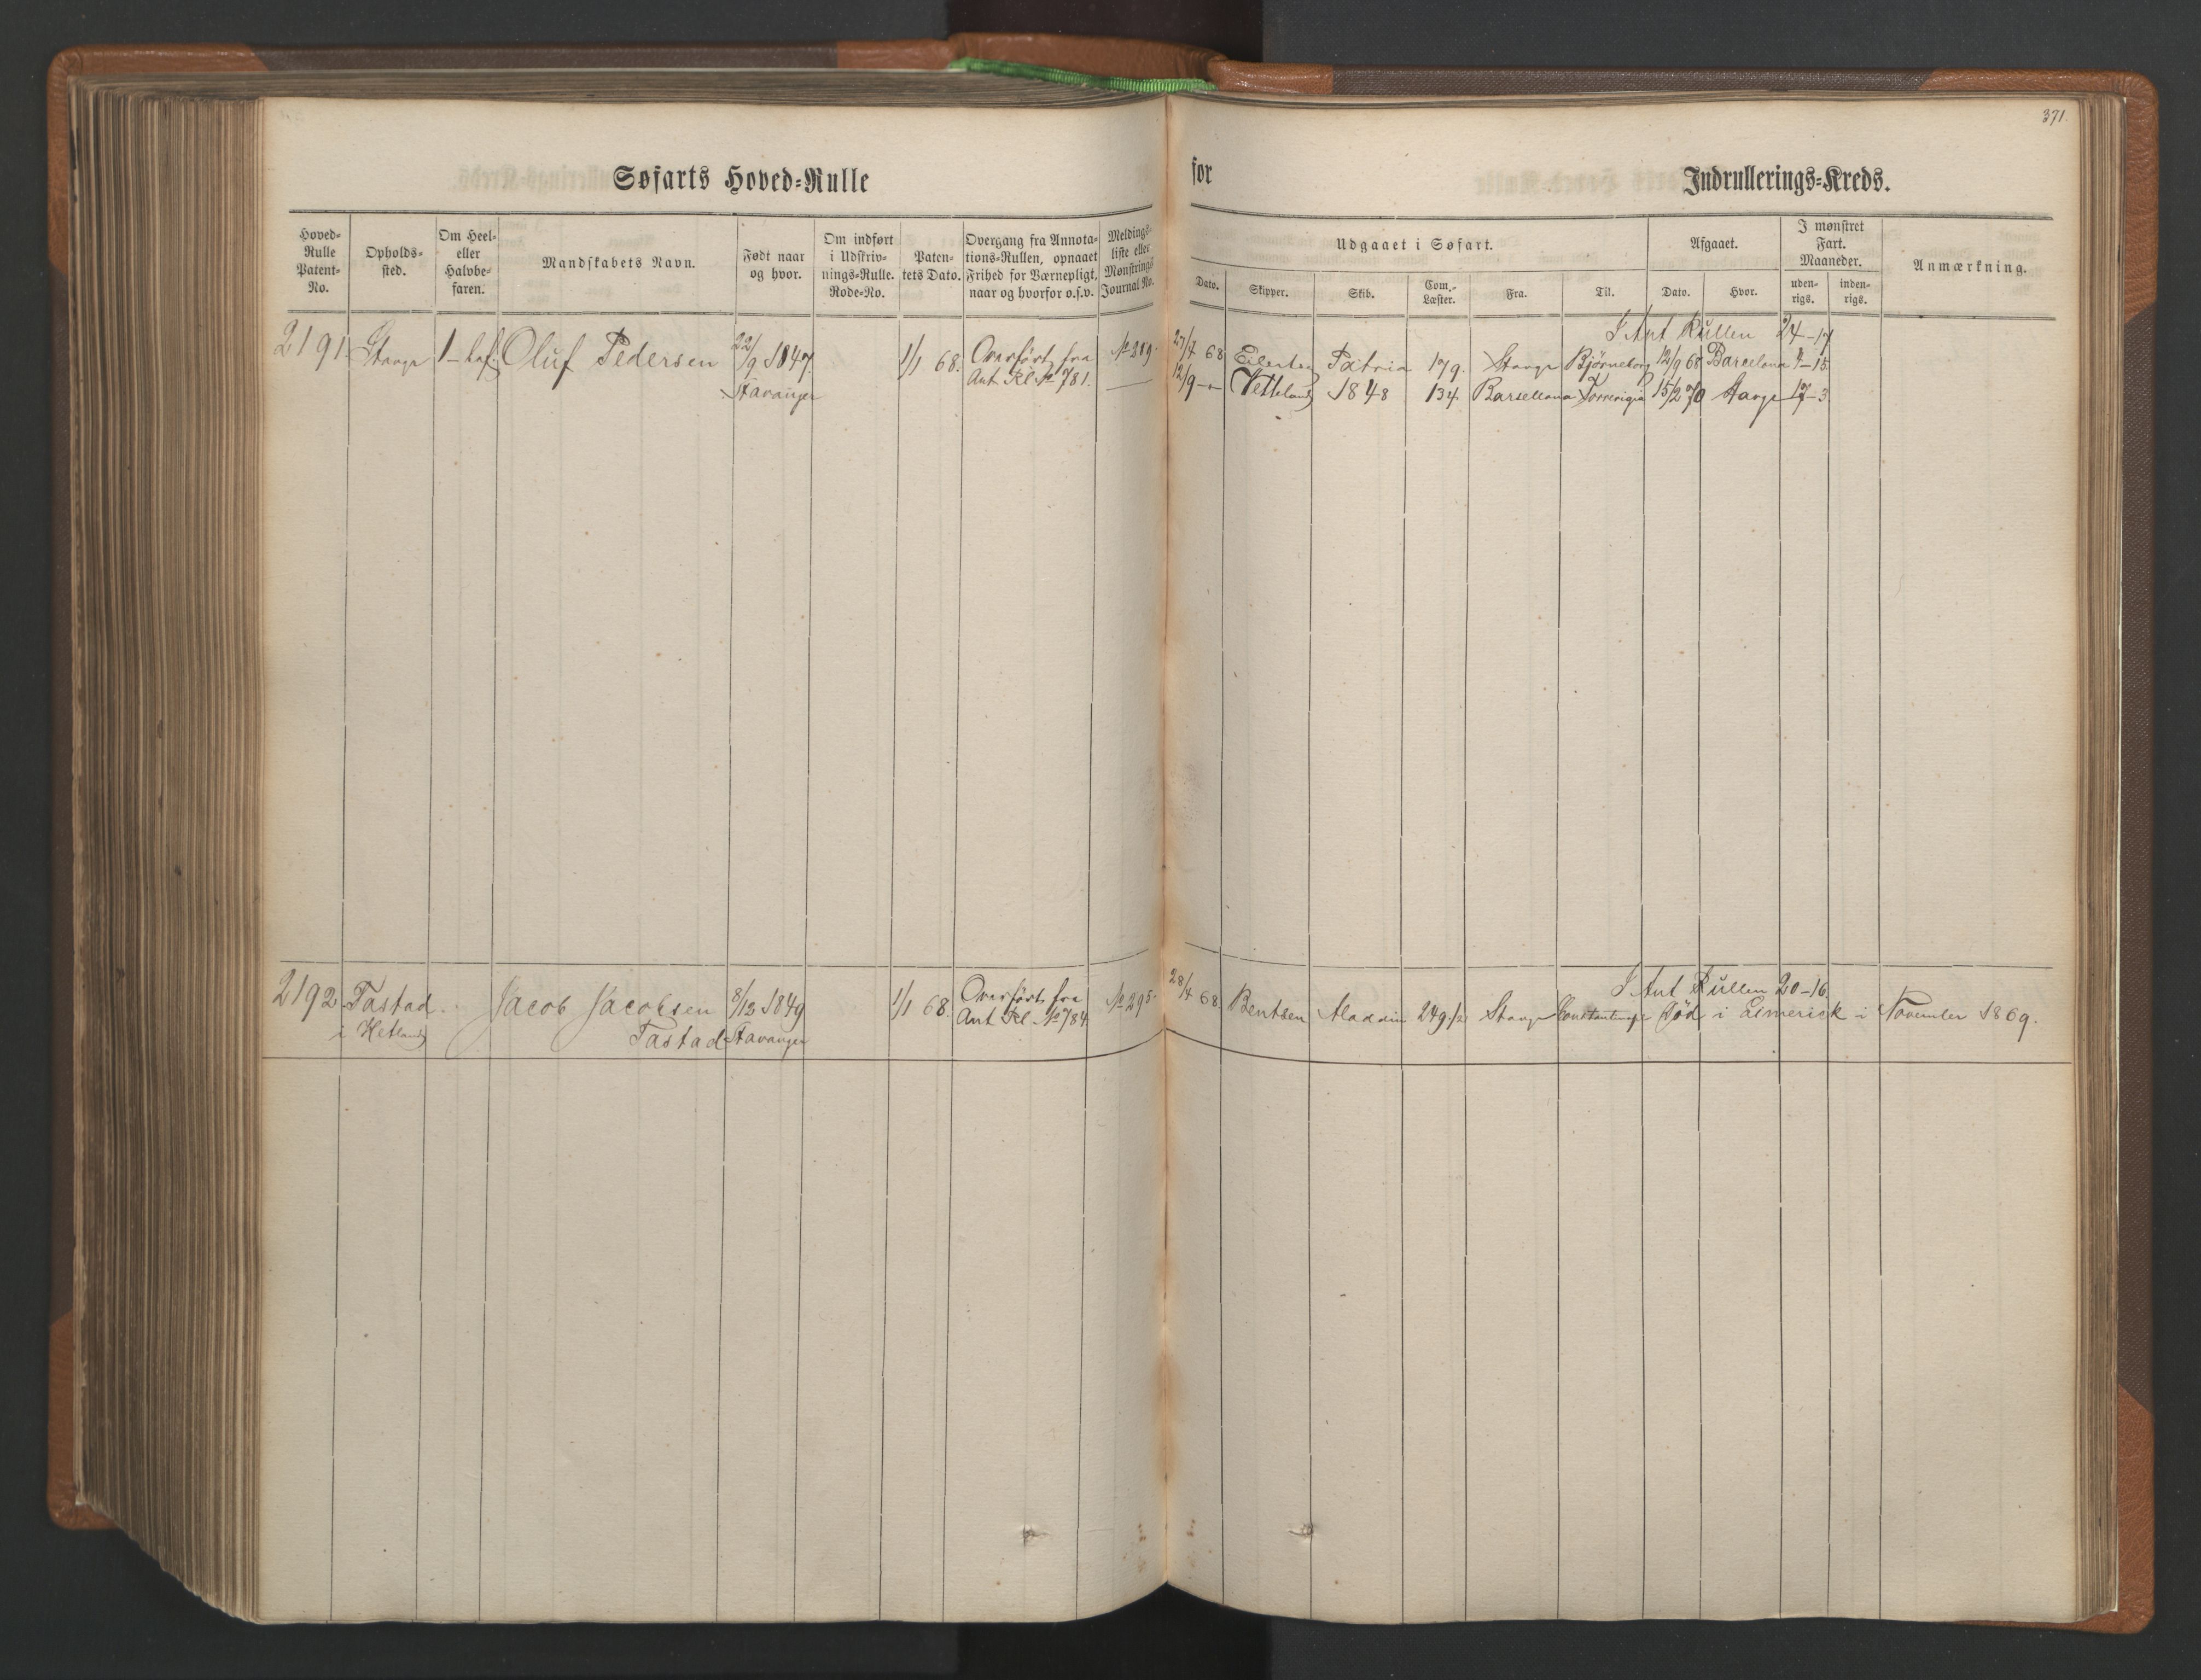 371.
Søfarts Hoved-Rulle for Indrullerings-Kreds.
Hoved-Rulle Patent-No.
Opholds-sted.
Om Heel- eller Halvbe-faren.
Mandskabets Navn.
Født naar og hvor.
Om indført i Udskriv-nings-Rulle. Rode-No.
Paten-tets Dato.
Overgang fra Annota-tions-Rullen, opnaaet Frihed for Værnepligt, naar og hvorfor o.s.v.
Meldings-liste eller Mønstrings Journal No.
Udgaaet i Søfart.
Dato.
Skipper.
Skib.
Com.-Læster.
Fra.
Til.
Afgaaet.
Dato.
Hvor.
I mønstret Fart. Maaneder.
uden-rigs.
inden-rigs.
Anmærkning.
I Ant Rullen 24-17
2191 Stavgr 1-haf. Oluf Pedersen 22/9 1847. 1/1 68. Overført fra No 319. 27/7 68 Eilertsen Patria 179. Stavgr Bjørneborg 12/9 68 Barcelona 1-15
Stavanger Ant Rl No 781. 12/9 - Vetteland 1848 134. Barsellona 15/2 70 Stavgr 17-3
I Ant Rullen 20-16
2192 Tastad Jacob Jacobsen 8/12 1849 1/1 68. Overført fra No 295. 28/4 68 Bentsen Aladdin 249 1/2 Stavgr Constantinopl Død i Limerick i November 1869.
i Hetland Tastad Stavanger Ant Rl No 784